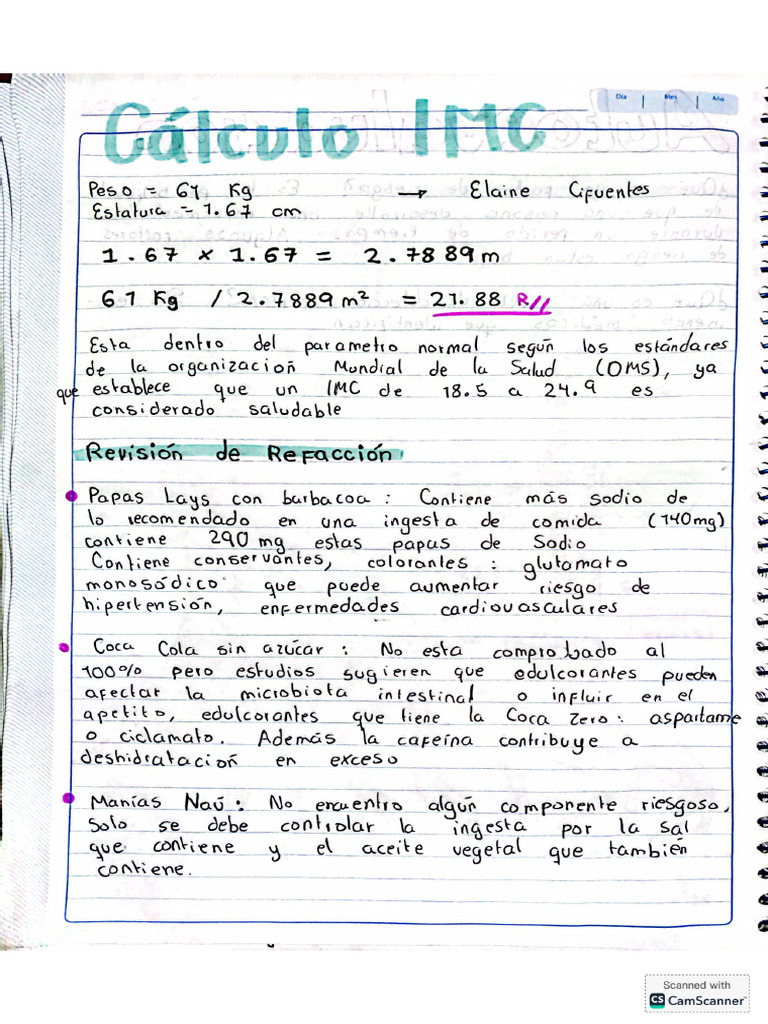 Dia Mes Año
Cálculo IMC
Peso = 61 Kg → Elaine Cifuentes
Estatura = 1.67 cm
1.67 x 1.67 = 2.7889 m
61 Kg / 2.7889 m² = 21.88 R//
Esta dentro del parametro normal según los estándares
de la organización Mundial de la Salud (OMS), ya
que establece que un IMC de 18.5 a 24.9 es
considerado saludable
Revisión de Refacción
• Papas Lays con barbacoa : Contiene más sodio de
lo recomendado en una ingesta de comida (140mg)
contiene 290 mg estas papas de Sodio
Contiene conservantes, colorantes : glutamato
monosódico: que puede aumentar riesgo de
hipertensión, enfermedades cardiovasculares
• Coca Cola sin azúcar : No esta comprobado al
100% pero estudios sugieren que edulcorantes pueden
afectar la microbiota intestinal o influir en el
apetito, edulcorantes que tiene la Coca Zero: aspartame
o ciclamato. Además la cafeína contribuye a
deshidratación en exceso
• Manías Naú : No encuentro algún componente riesgoso,
solo se debe controlar la ingesta por la sal
que contiene y el aceite vegetal que también
contiene.
Scanned with
CS CamScanner